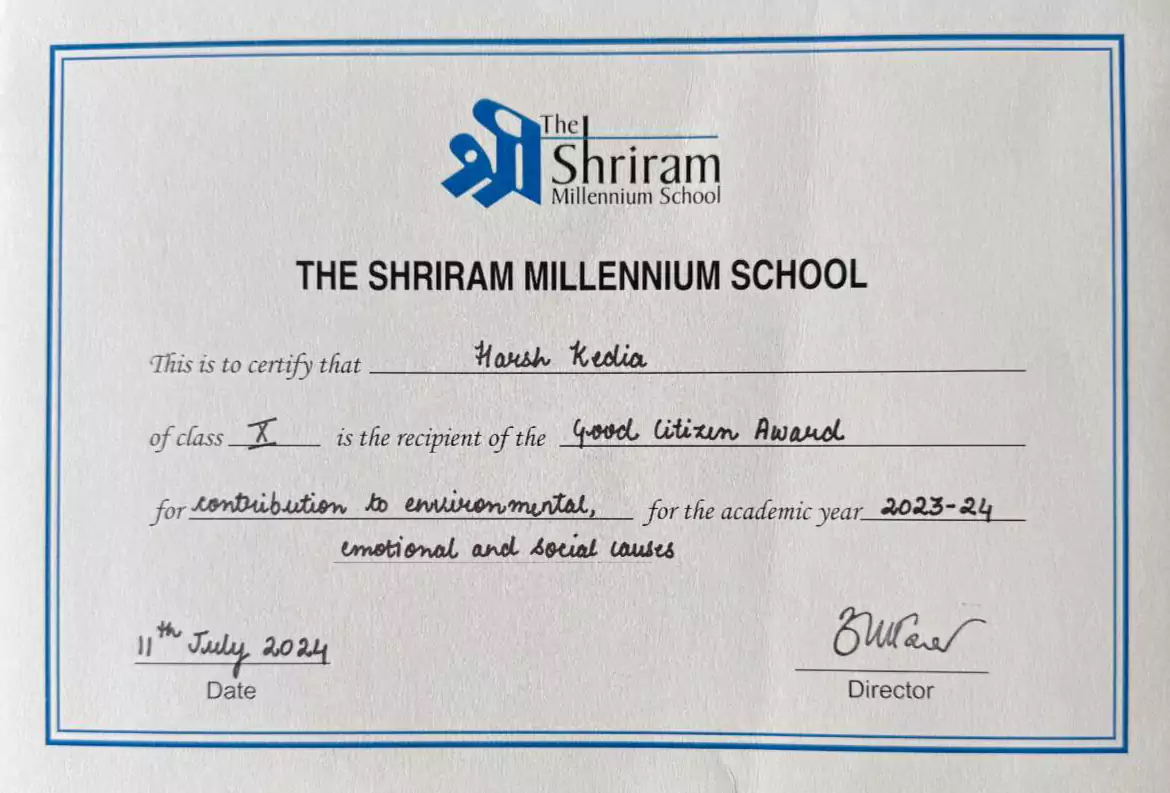 The
Shriram
Millennium School
THE SHRIRAM MILLENNIUM SCHOOL
This is to certify that Harsh Kedia
of class X is the recipient of the Good Citizen Award
for contribution to environmental, for the academic year 2023-24
emotional and social causes
11th July 2024
Date
Director